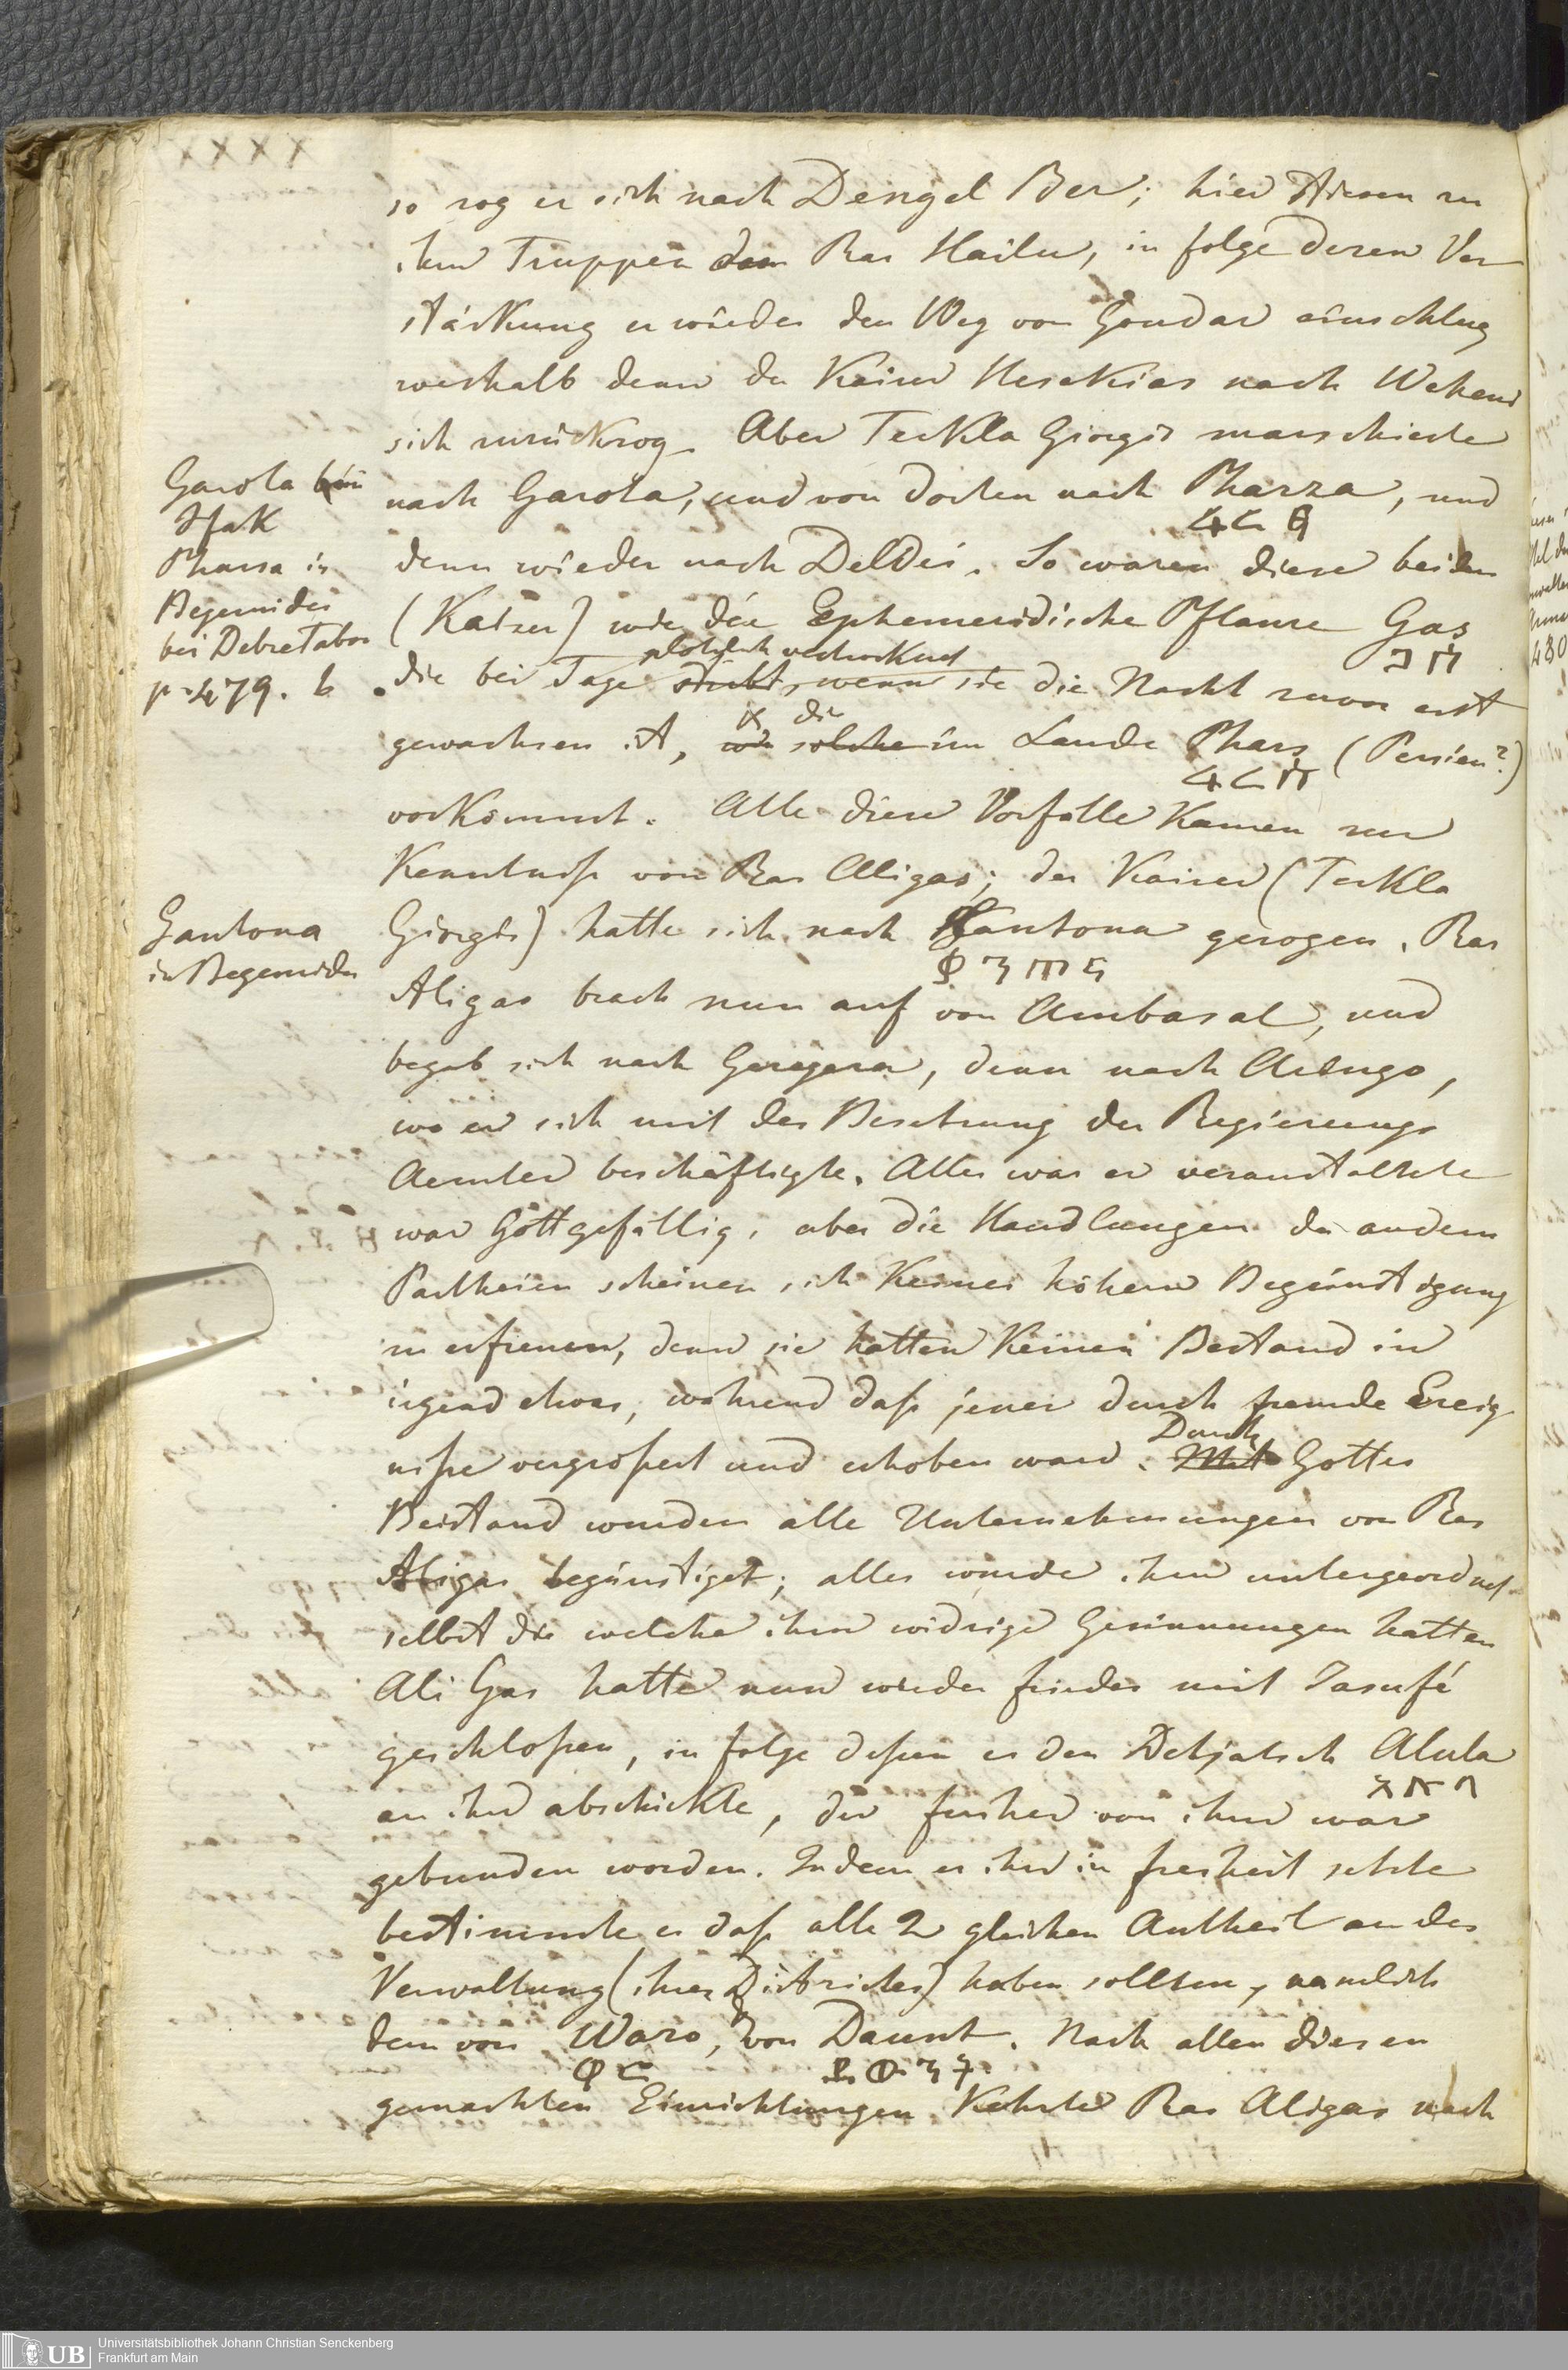 XXXX
so zog er sich nach Dengel Ber; hier stiesen zu
ihm Truppen dem Ras Hailu, in folge deren Ver
stärkung er wieder den Weg von Gondar einschlug
weshalb denn der Kaiser Heseckias nach Wehend
sich zurückzog. Aber Teckla Giorgis marschierte
nach Garota, und von dorten nach Pharza, und
ፋርፃ
denn wieder nach Deldei. So waren diese beiden
(Kaiser) wie die Ephemeridische Pflanze Gas
ጋሽ
plötzlich vertrocknet
die bei Tage stirbt, wenn sie die Nacht zuvor erst
die
gewachsen ist, wie solche im Lande Phars (Persien?)
ፋርስ
vorkommt. Alle diese Vorfälle kamen zur
Kenntniß von Ras Aligas; der Kaiser (Teckla
Giorgis) hatte sich nach Kantona gezogen. Ras
ቃንጦና
Aligas brach nun auf von Ambasal, und
begab sich nach Geregera, denn nach Aringo,
wo er sich mit der Besetzung der Regierungs
Aemter beschäftigte. Alles was er veranstaltete
war Gottgefällig, aber die Handlungen der andern
Partheien scheinen sich keiner höhern Begünstigung
zu erfreuen, denn sie hatten keinen Bestand in
irgend etwas, während daß jener durch fremde Ereig
Durch
niße vergroßert und erhoben ward. Mit Gottes
Beistand wurden alle Unternehmungen von Ras
Aligas begünstiget; alles wurde ihm untergeordnet
selbst die welche ihm widrige Gesinnungen hatten
Ali Gas hatte nun wieder frieden mit Jasufé
geschloßen, in folge deßen er den Detjatsch Alula
አሉላ
an ihn abschickte, der früher von ihm war
gebunden worden. Indem er ihn in freiheit setzte
bestimmte er daß alle 2 gleichen Antheil an der
Verwaltung (ihrer Districter) haben sollten, namlich
dem von Waro, von Daunt. Nach allen diesen
ዋሮ ደውንት
gemachten Einrichtungen kehrte Ras Aligas nach
Garota bei
Ifak
Pharsa in
Begemider
bei Debretabor
p. 479. b
Gantona
in Begemider
UB Universitätsbibliothek Johann Christian Senckenberg
Frankfurt am Main